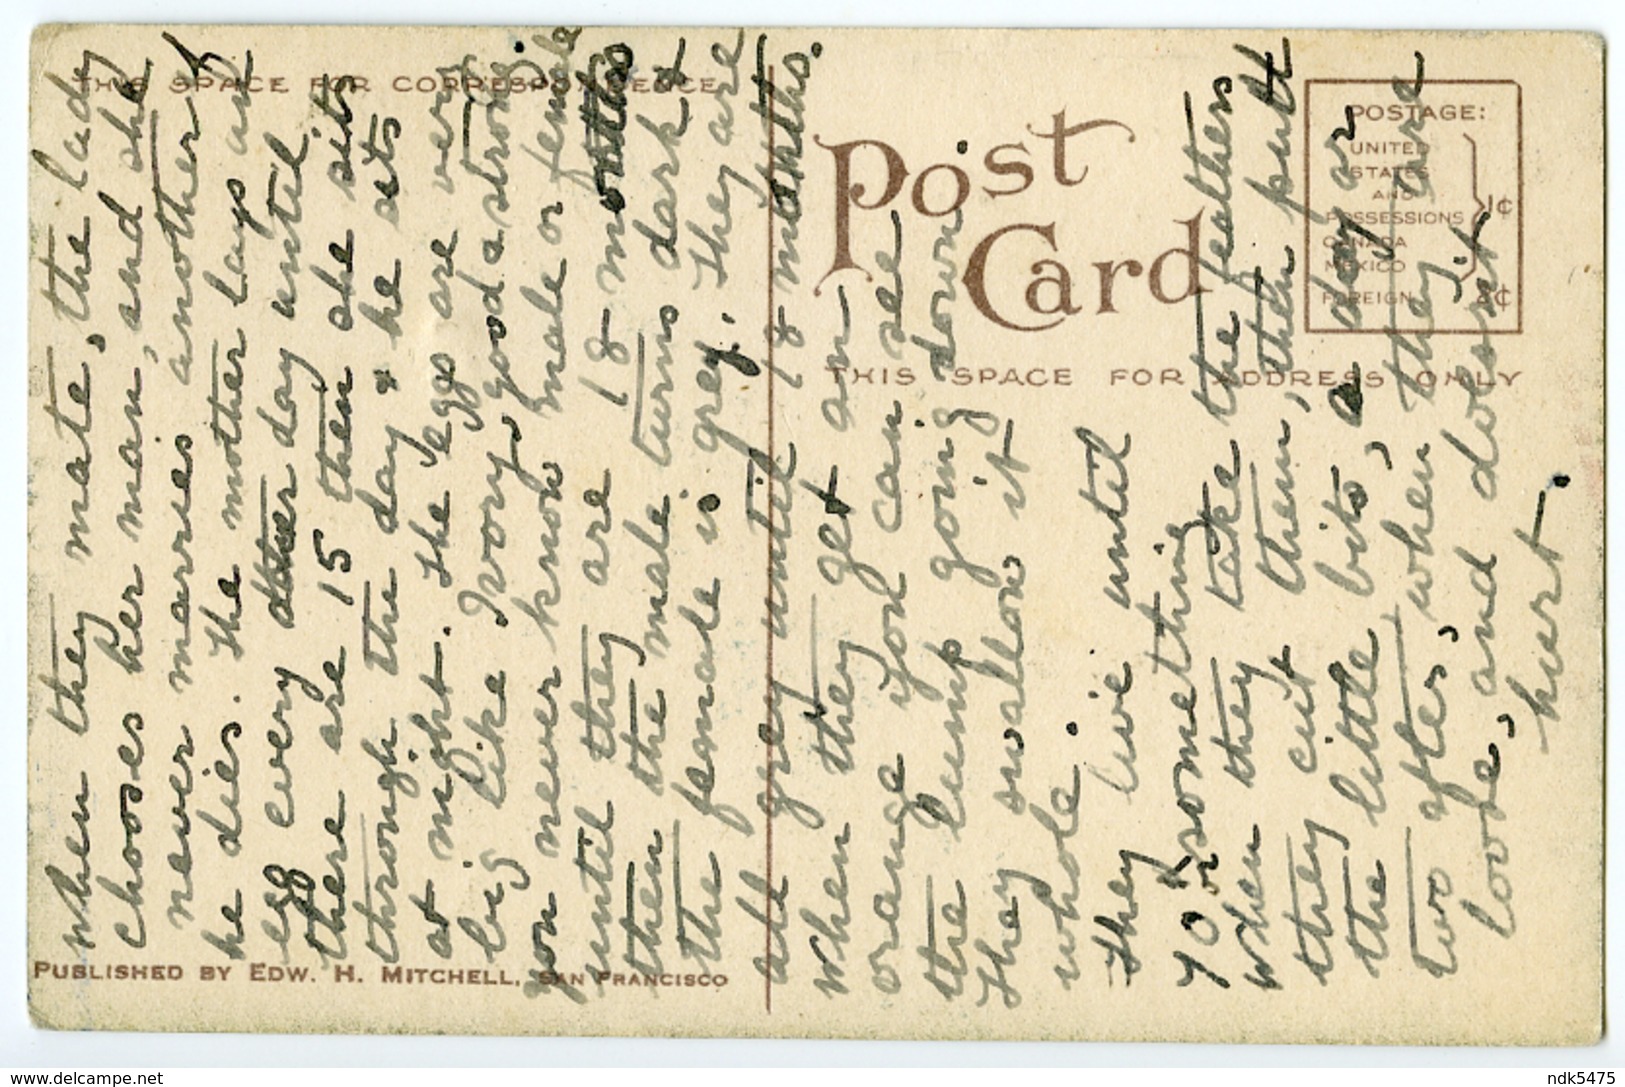 THIS SPACE FOR CORRESPONDENCE
Post Card
THIS SPACE FOR ADDRESS ONLY
POSTAGE:
UNITED
STATES
AND
POSSESSIONS
CANADA
MEXICO
1¢
FOREIGN 2¢
when they mate, the lady
chooses her man, and she
never marries another if
he dies. The mother lays an
egg every other day until
there are 15 then she sits
through the day & he sits
at night. The eggs are very
big like Ivory good & strong
you never know male or female
until they are 18 months
then the male turns dark &
the female is grey. They are
all grey until 18 months.
When they get an
orange you can see
the lump going down
They swallow it
whole.
They live until
70 or something
when they take the feathers
they cut them, then pull
the little bits, a day or
two after, when they are
loose, and doesn't
hurt.
PUBLISHED BY EDW. H. MITCHELL, SAN FRANCISCO
ndk5475